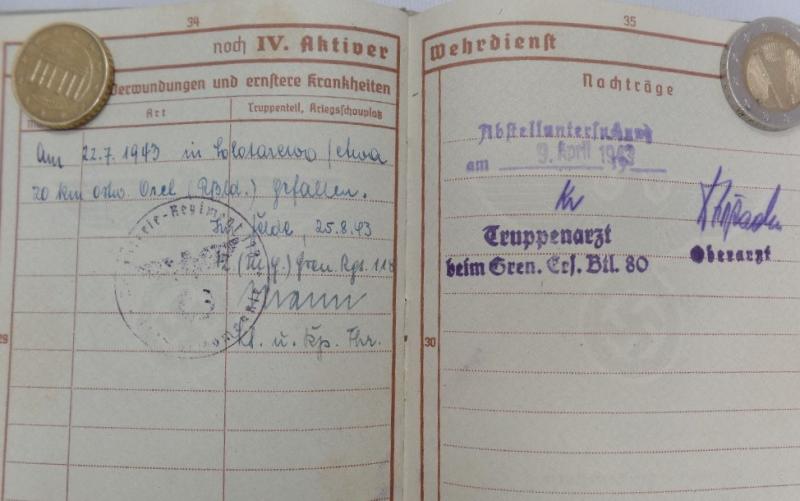 34
noch IV. Aktiver
Verwundungen und ernstere Krankheiten
Art
Truppenteil, Kriegsschauplatz
Am 22.7.1943 in Solotarewo / etwa
20 km ostw. Orel (Rßld.) gefallen.
Im Felde, 25.8.43
12. (M.G.) Gren. Rgt. 118
Lt. u. Kp. Fhr.
29
35
Wehrdienst
Nachträge
Abstelluntersuchung
am 9. April 1943
Truppenarzt
beim Gren. Ers. Btl. 80
Oberarzt
30